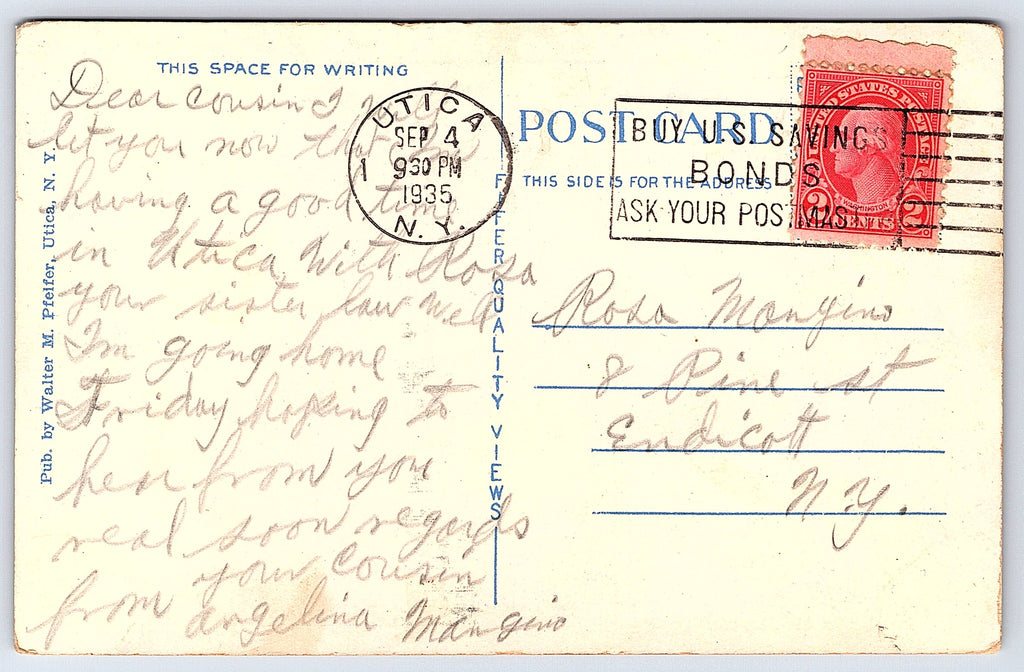 THIS SPACE FOR WRITING
Dear Cousin I
let you now that
having a good time
in Utica With Rosa
your sister law well
I'm going home
Friday hoping to
hear from you
real soon regards
your Cousin
from angelina Mangino
Pub. by Walter M. Pfeifer, Utica, N. Y.
PFEIFFER QUALITY VIEWS
UTICA
SEP 4
1 930 PM
1935
N.Y.
POST CARD
THIS SIDE IS FOR THE ADDRESS
BUY U.S. SAVINGS
BONDS
ASK YOUR POSTMASTER
UNITED STATES POSTAGE
WASHINGTON
2 CENTS 2
Rosa Mangino
8 Pine st
Endicott
N.Y.